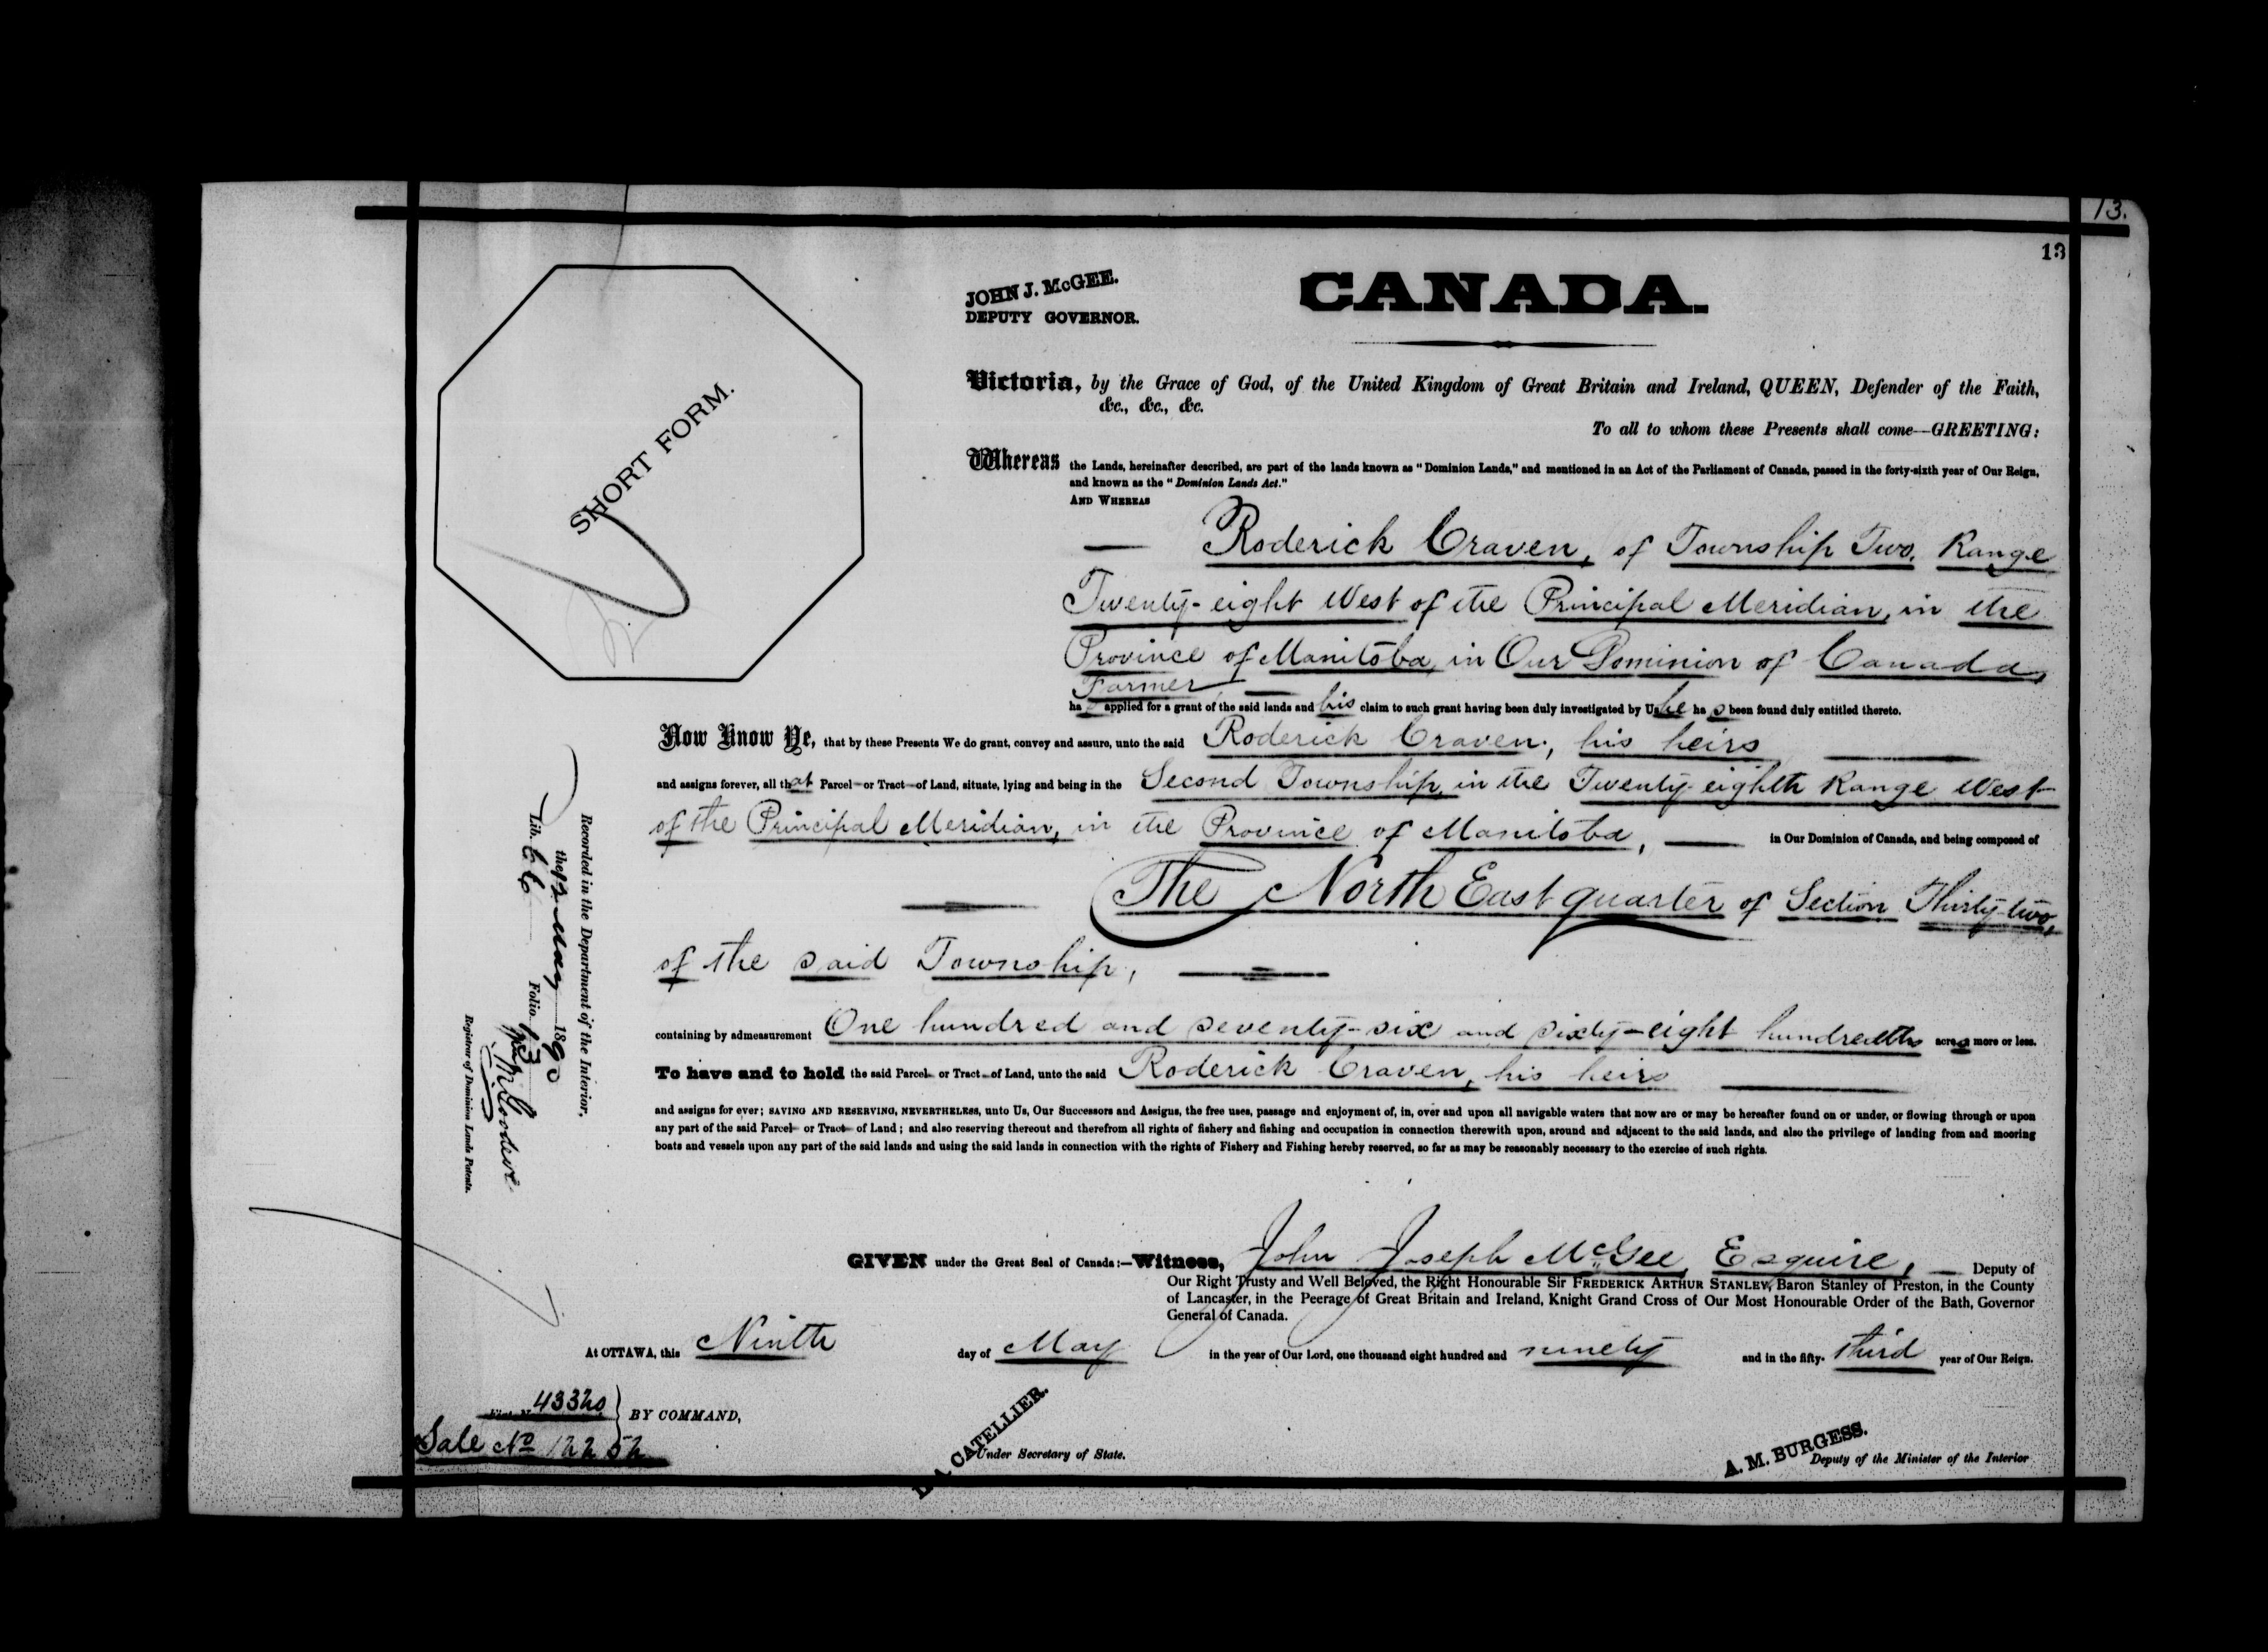 13.
13
JOHN J. McGEE.
DEPUTY GOVERNOR.
CANADA.
SHORT FORM.
Victoria, by the Grace of God, of the United Kingdom of Great Britain and Ireland, QUEEN, Defender of the Faith,
&c., &c., &c.
To all to whom these Presents shall come—GREETING:
Whereas the Lands, hereinafter described, are part of the lands known as "Dominion Lands," and mentioned in an Act of the Parliament of Canada, passed in the forty-sixth year of Our Reign,
and known as the "Dominion Lands Act."
AND WHEREAS
Roderick Craven, of Township Two, Range
Twenty-eight West of the Principal Meridian, in the
Province of Manitoba, in Our Dominion of Canada,
Farmer
has applied for a grant of the said lands and his claim to such grant having been duly investigated by Us he has been found duly entitled thereto.
Now Know Ye, that by these Presents We do grant, convey and assure, unto the said Roderick Craven, his heirs
and assigns forever, all that Parcel or Tract of Land, situate, lying and being in the Second Township, in the Twenty-eighth Range West
of the Principal Meridian, in the Province of Manitoba, in Our Dominion of Canada, and being composed of
The North East quarter of Section Thirty-two,
of the said Township,
containing by admeasurement One hundred and seventy-six and sixty-eight hundredths acres more or less.
To have and to hold the said Parcel or Tract of Land, unto the said Roderick Craven, his heirs
and assigns for ever; SAVING AND RESERVING, NEVERTHELESS, unto Us, Our Successors and Assigns, the free uses, passage and enjoyment of, in, over and upon all navigable waters that now are or may be hereafter found on or under, or flowing through or upon
any part of the said Parcel or Tract of Land; and also reserving thereout and therefrom all rights of fishery and fishing and occupation in connection therewith upon, around and adjacent to the said lands, and also the privilege of landing from and mooring
boats and vessels upon any part of the said lands and using the said lands in connection with the rights of Fishery and Fishing hereby reserved, so far as may be reasonably necessary to the exercise of such rights.
Recorded in the Department of the Interior,
the 12 May 1890
Lib. 66 Folio 13
Registrar of Dominion Lands Patents.
GIVEN under the Great Seal of Canada:—Witness, John Joseph McGee, Esquire, Deputy of
Our Right Trusty and Well Beloved, the Right Honourable Sir FREDERICK ARTHUR STANLEY, Baron Stanley of Preston, in the County
of Lancaster, in the Peerage of Great Britain and Ireland, Knight Grand Cross of Our Most Honourable Order of the Bath, Governor
General of Canada.
At OTTAWA, this Ninth day of May in the year of Our Lord, one thousand eight hundred and ninety and in the fifty-third year of Our Reign.
43320
BY COMMAND,
Sale No 12252
CATELLIER.
Under Secretary of State.
A. M. BURGESS.
Deputy of the Minister of the Interior